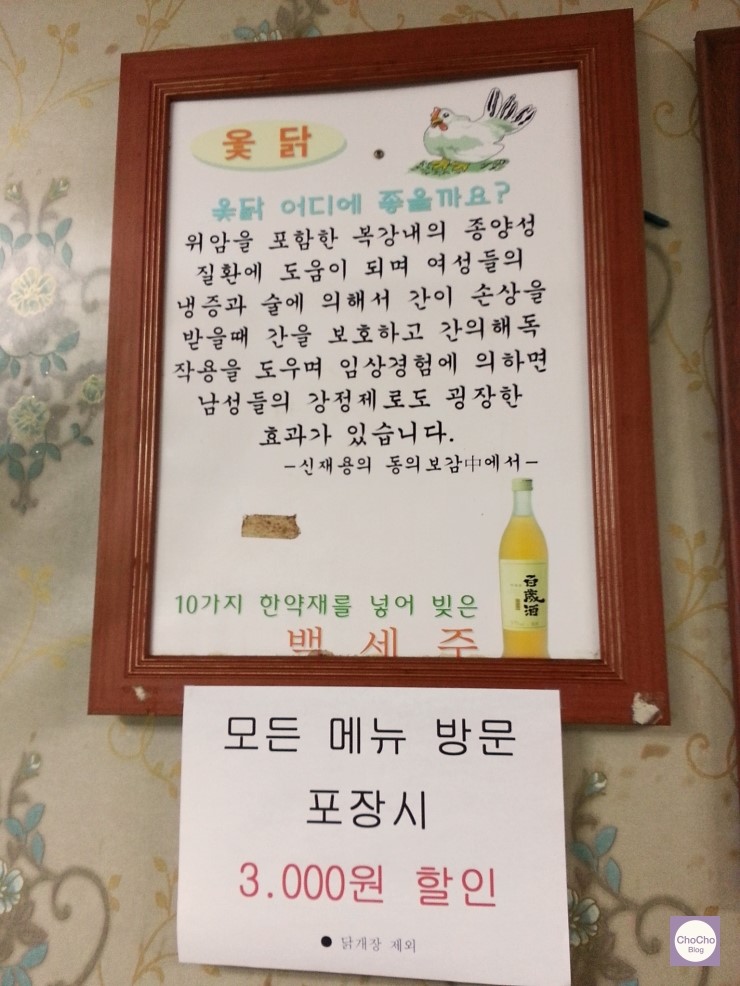 옻 닭
옻닭 어디에 좋을까요?
위암을 포함한 복강내의 종양성
질환에 도움이 되며 여성들의
냉증과 술에 의해서 간이 손상을
받을때 간을 보호하고 간의해독
작용을 도우며 임상경험에 의하면
남성들의 강정제로도 굉장한
효과가 있습니다.
-신재용의 동의보감中에서-
10가지 한약재를 넣어 빚은
백 세 주
百歲酒
모든 메뉴 방문
포장시
3.000원 할인
● 닭개장 제외
ChoCho
Blog